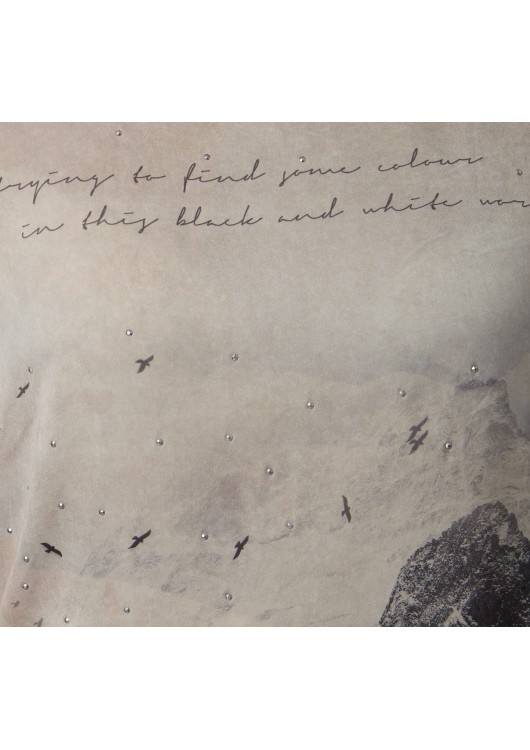 trying to find some colour
in this black and white wor